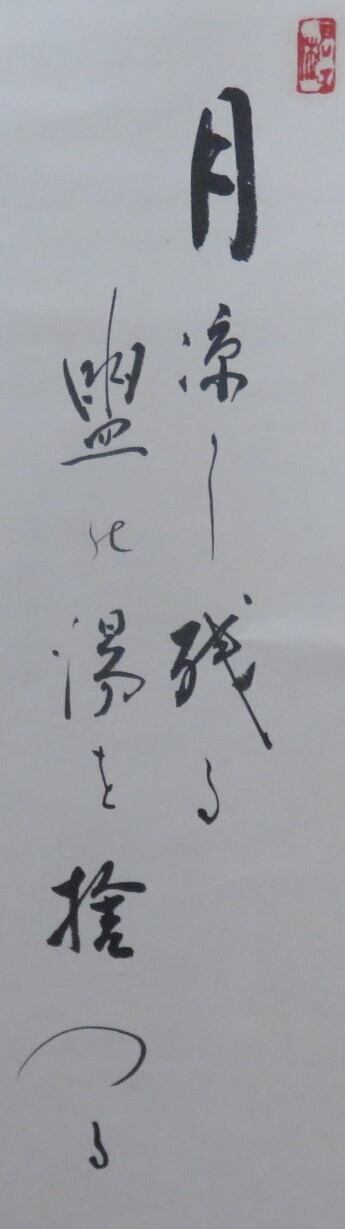 月涼し残る
盥の湯を捨つる